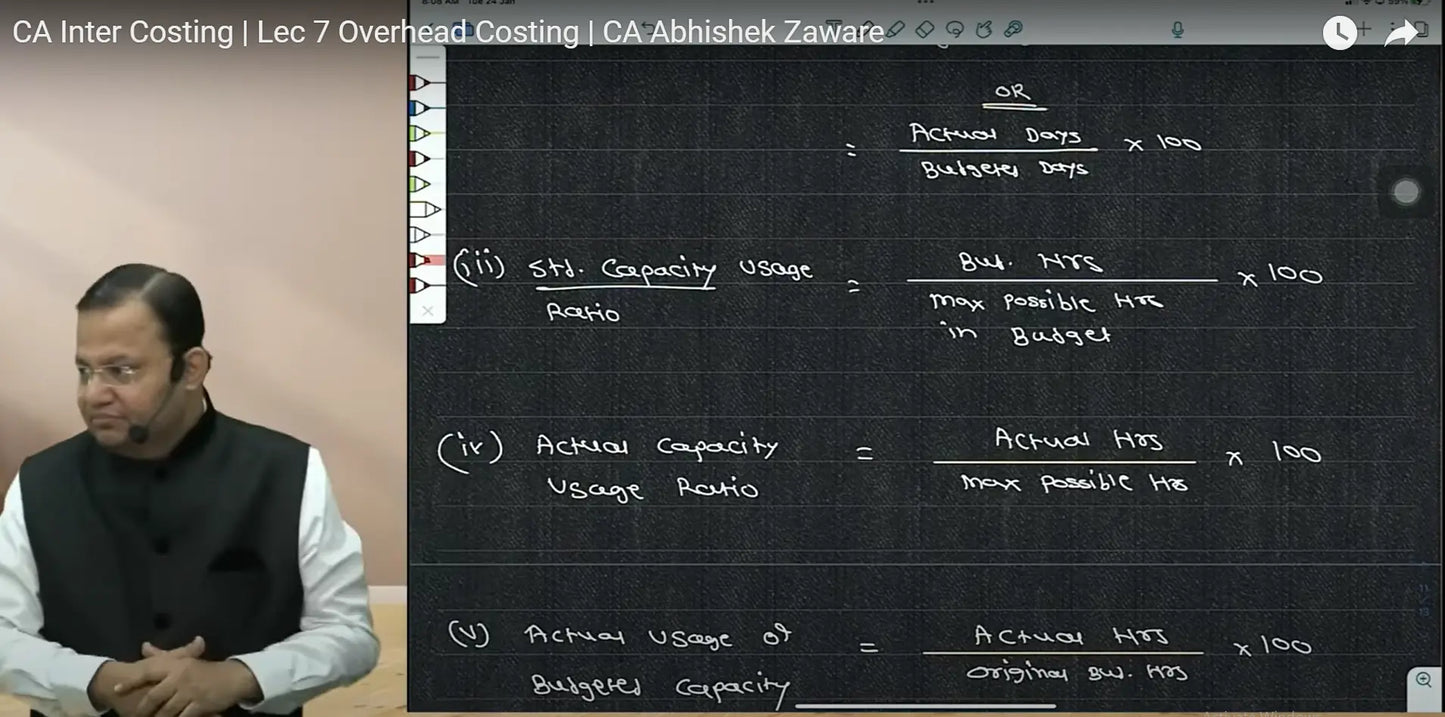 CA Inter Costing | Lec 7 Overhead Costing | CA Abhishek Zaware
OR
= Actual Days / Budgeted Days × 100
(iii) Std. Capacity Usage Ratio = Bud. Hrs / Max Possible Hrs in Budget × 100
(iv) Actual Capacity Usage Ratio = Actual Hrs / Max Possible Hrs × 100
(v) Actual Usage of Budgeted Capacity = Actual Hrs / Original Bud. Hrs × 100